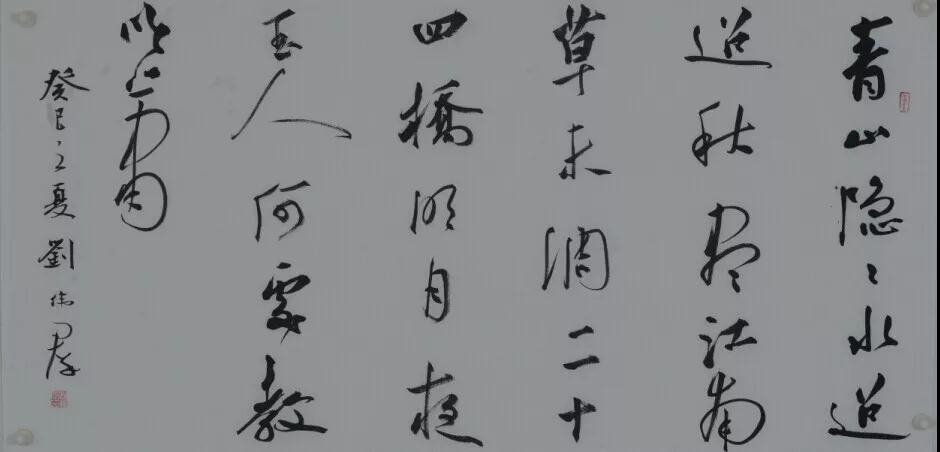 青山隐〻水迢
迢秋尽江南
草未凋二十
四橋明月夜
玉人何處教
吹箫
癸巳之夏 劉偉